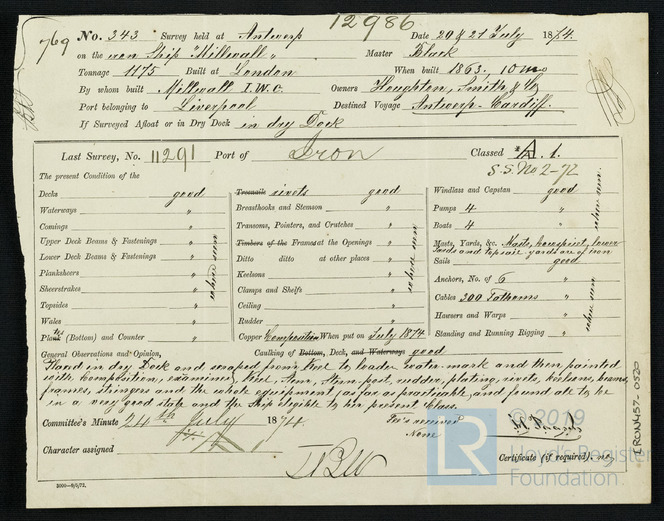 12986
769
No. 343 Survey held at Antwerp Date 20 & 21 July 1874.
on the iron Ship "Millwall" Master Black
Tonnage 1175 Built at London When built 1863. 10 mo
By whom built Millwall I.W.C. Owners Houghton, Smith & Co
Port belonging to Liverpool Destined Voyage Antwerp - Cardiff.
If Surveyed Afloat or in Dry Dock in dry Dock
Last Survey, No. 11291 Port of Iron Classed A. 1.
S.S. No 2-72
The present Condition of the
Decks good
Waterways "
Comings "
Upper Deck Beams & Fastenings "
Lower Deck Beams & Fastenings "
Planksheers "
Sheerstrakes "
Topsides "
Wales "
Plank (Bottom) and Counter "
where seen
Treenails rivets good
Breasthooks and Stemson "
Transoms, Pointers, and Crutches "
Timbers of the Frames at the Openings "
Ditto ditto at other places "
Keelsons "
Clamps and Shelfs "
Ceiling "
Rudder "
Copper Composition When put on July 1874
where seen
Windlass and Capstan good
Pumps 4 "
Boats 4 "
where seen
Masts, Yards, &c. Masts, bowsprit, lower
yards and topsail yards are of iron
Sails good
Anchors, No. of 6 "
Cables 300 Fathoms "
Hawsers and Warps "
Standing and Running Rigging "
where seen
General Observations and Opinion, Caulking of Bottom, Deck, and Waterways good
Placed in dry Dock and scraped from Keel to loader water-mark and then painted
with composition, examined Keel, Stem, Stern-post, rudder, plating, rivets, keelsons, beams,
frames, stringers and the whole equipment as far as practicable and found all to be
in a very good state and the Ship eligible to her present Class.
Committee's Minute 24th July 1874.
Fee received
None
Character assigned
Certificate (if required). no
3000-8/6/72.
LRON457-0520
LR
© 2019
Lloyd's Register
Foundation